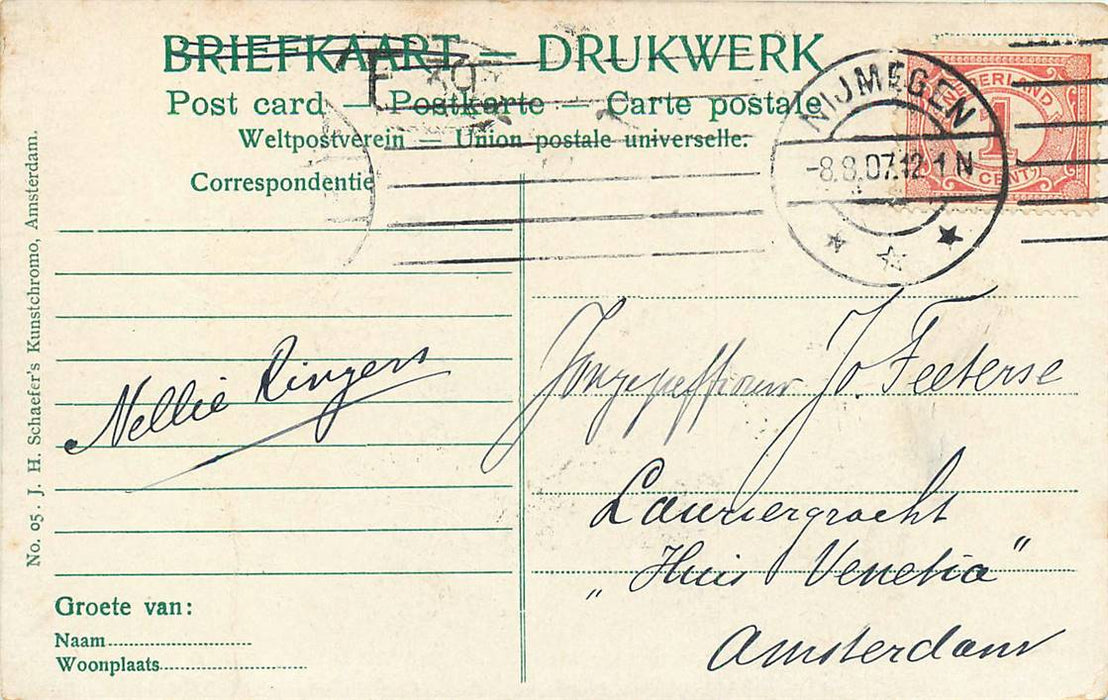 BRIEFKAART — DRUKWERK
Post card — Postkarte — Carte postale
Weltpostverein — Union postale universelle.
Correspondentie
NIJMEGEN
-8.8.07.12-1 N
NEDERLAND
1
CENT
Nellie Ringers
Jongejuffrouw Jo Feeterse
Lauriergracht
„Huis Venetia"
Amsterdam
Groete van:
Naam
Woonplaats
No. 05. J. H. Schaefer's Kunstchromo, Amsterdam.